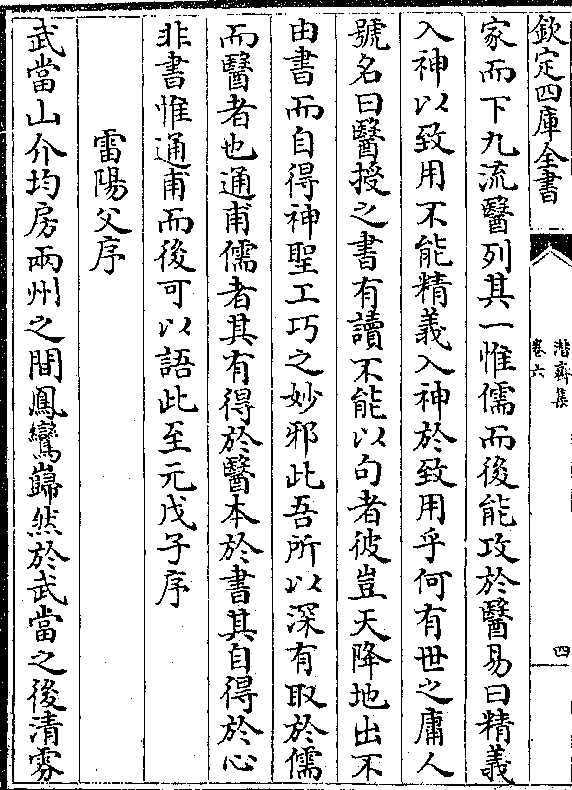 欽定四庫全書
潛齋集
卷六
四
家而下九流醫列其一惟儒而後能攻於醫易曰精義
入神以致用不能精義入神於致用乎何有世之庸人
號名曰醫授之書有讀不能以句者彼豈天降地出不
由書而自得神聖工巧之妙邪此吾所以深有取於儒
而醫者也通甫儒者其有得於醫本於書其自得於心
非書惟通甫而後可以語此至元戊子序
雷陽父序
武當山介均房兩州之間鳳鸞巋然於武當之後清雰